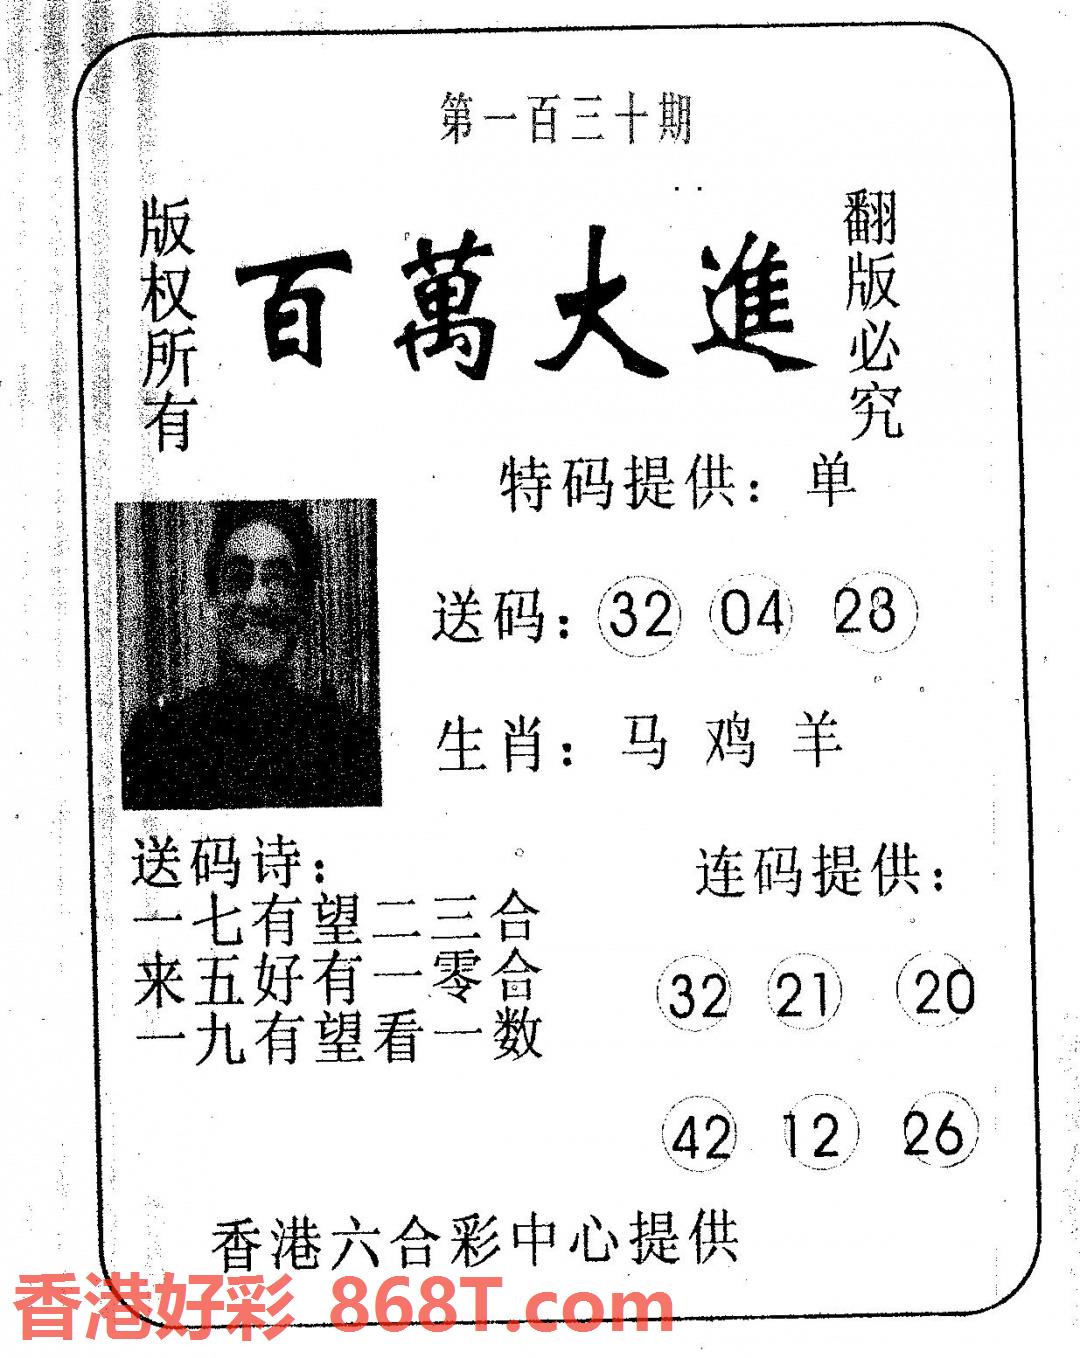 第一百三十期
版权所有
百萬大進
翻版必究
特码提供：单
送码：32 04 28
生肖：马 鸡 羊
送码诗：
一七有望二三合
来五好有一零合
一九有望看一数
连码提供：
32 21 20
42 12 26
香港六合彩中心提供
香港好彩 868T.com